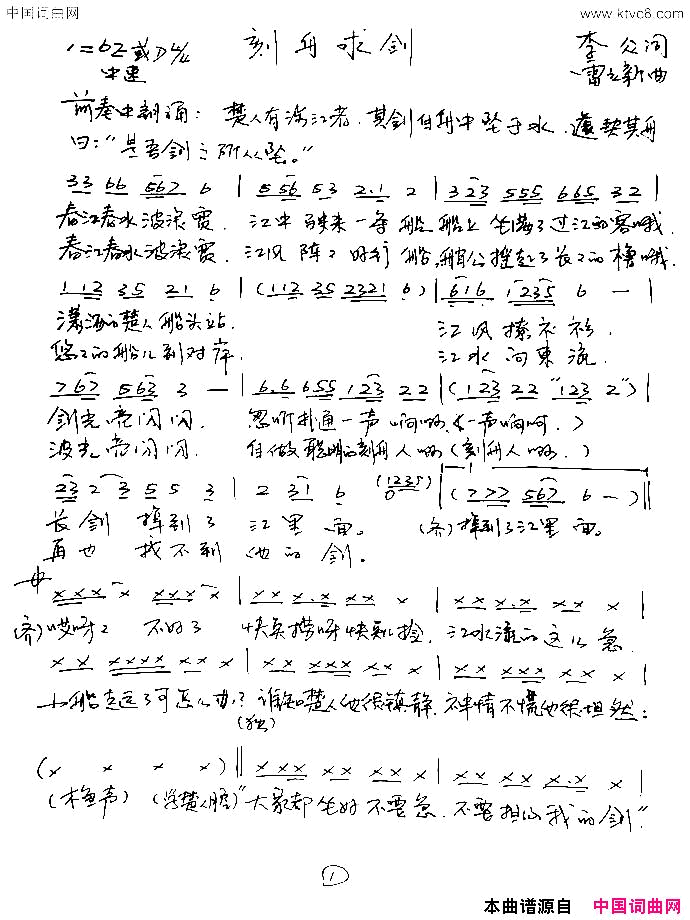 中国词曲网 www.ktvc8.com
刻舟求剑
1=bE或D 4/4 李众词
中速 雷立新曲
前奏中朗诵：楚人有涉江者，其剑自舟中坠于水，遽契其舟
曰："是吾剑之所从坠。"
3 3 6 6 5 6 7 6 | 5 5 6 5 3 2·1 2 | 3 2 3 5 5 5 6 6 5 3 2 |
春江春水波浪宽，江中驶来一条船，船上坐满了过江的客哦。
春江春水波浪宽，江风阵阵好行船，船公摇起了长长的橹哦。
1 1 2 3 5 2 1 6 | (1 1 2 3 5 2 3 2 1 6) | 6 1 6 1 2 3 5 6 — |
潇洒的楚人船头站，江风撩衣衫，
悠悠的船儿到对岸，江水向东流，
7 6 7 5 6 3 3 — | 6·6 6 5 5 1 2 3 2 2 | (1 2 3 2 2 "1 2 3 2") |
剑光亮闪闪，忽听扑通一声响啊，(一声响啊，)
波光亮闪闪，自做聪明的刻舟人啊(刻舟人啊，)
2 3 2 3 5 5 3 | 2 3 1 6 (1 2 3 5) 0 | (7 7 7 5 6 7 6 —) ||
长剑掉到了江里面。(齐)掉到了江里面。
再也找不到他的剑。
x x x x x x x x | x x x·x x x x | x x x·x x x x |
(齐)哎呀呀不好了快点捞呀快点捡，江水流的这么急，
x x x x x x x x x | x x x x x x x x | x x x x x x x x |
小船走远了可怎么办？谁知楚人他很镇静，神情不慌他很坦然：
(独)
(x x x x) || x x x x x x x x | x x x x x x x·x x |
(木鱼声) (学楚人腔)"大家都坐好不要急，不要担心我的剑"
1
本曲谱源自 中国词曲网